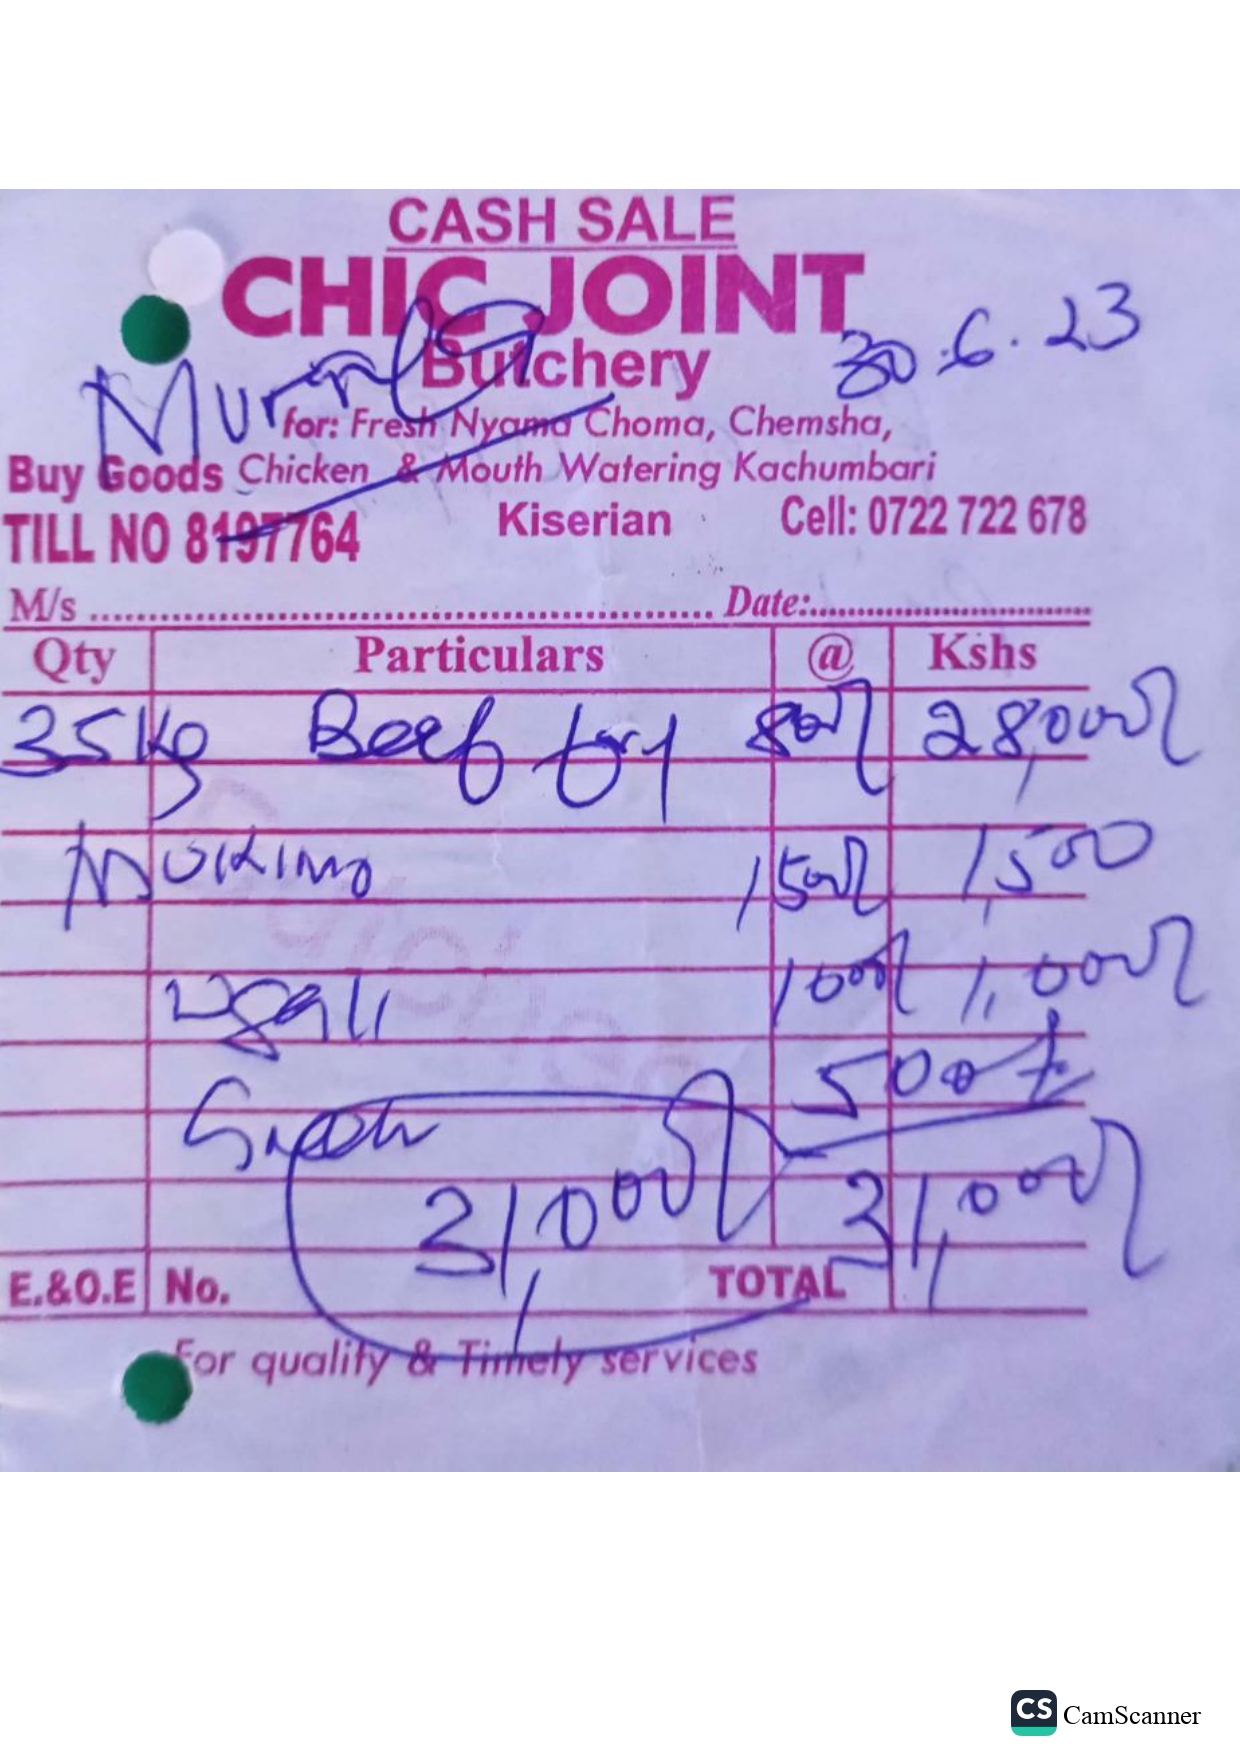 CASH SALE
CHIC JOINT
Butchery
30.6.23
for: Fresh Nyama Choma, Chemsha,
Buy Goods Chicken & Mouth Watering Kachumbari
TILL NO 8197764 Kiserian Cell: 0722 722 678
M/s ........ Date:........
Qty Particulars @ Kshs
35kg Beef fry 800/ 28,000/
Mukimo 1500/ 1,500
ugali 1000/ 1,000/
500/=
31,000/ 31,000/
E.&O.E No. TOTAL
For quality & Timely services
CS CamScanner